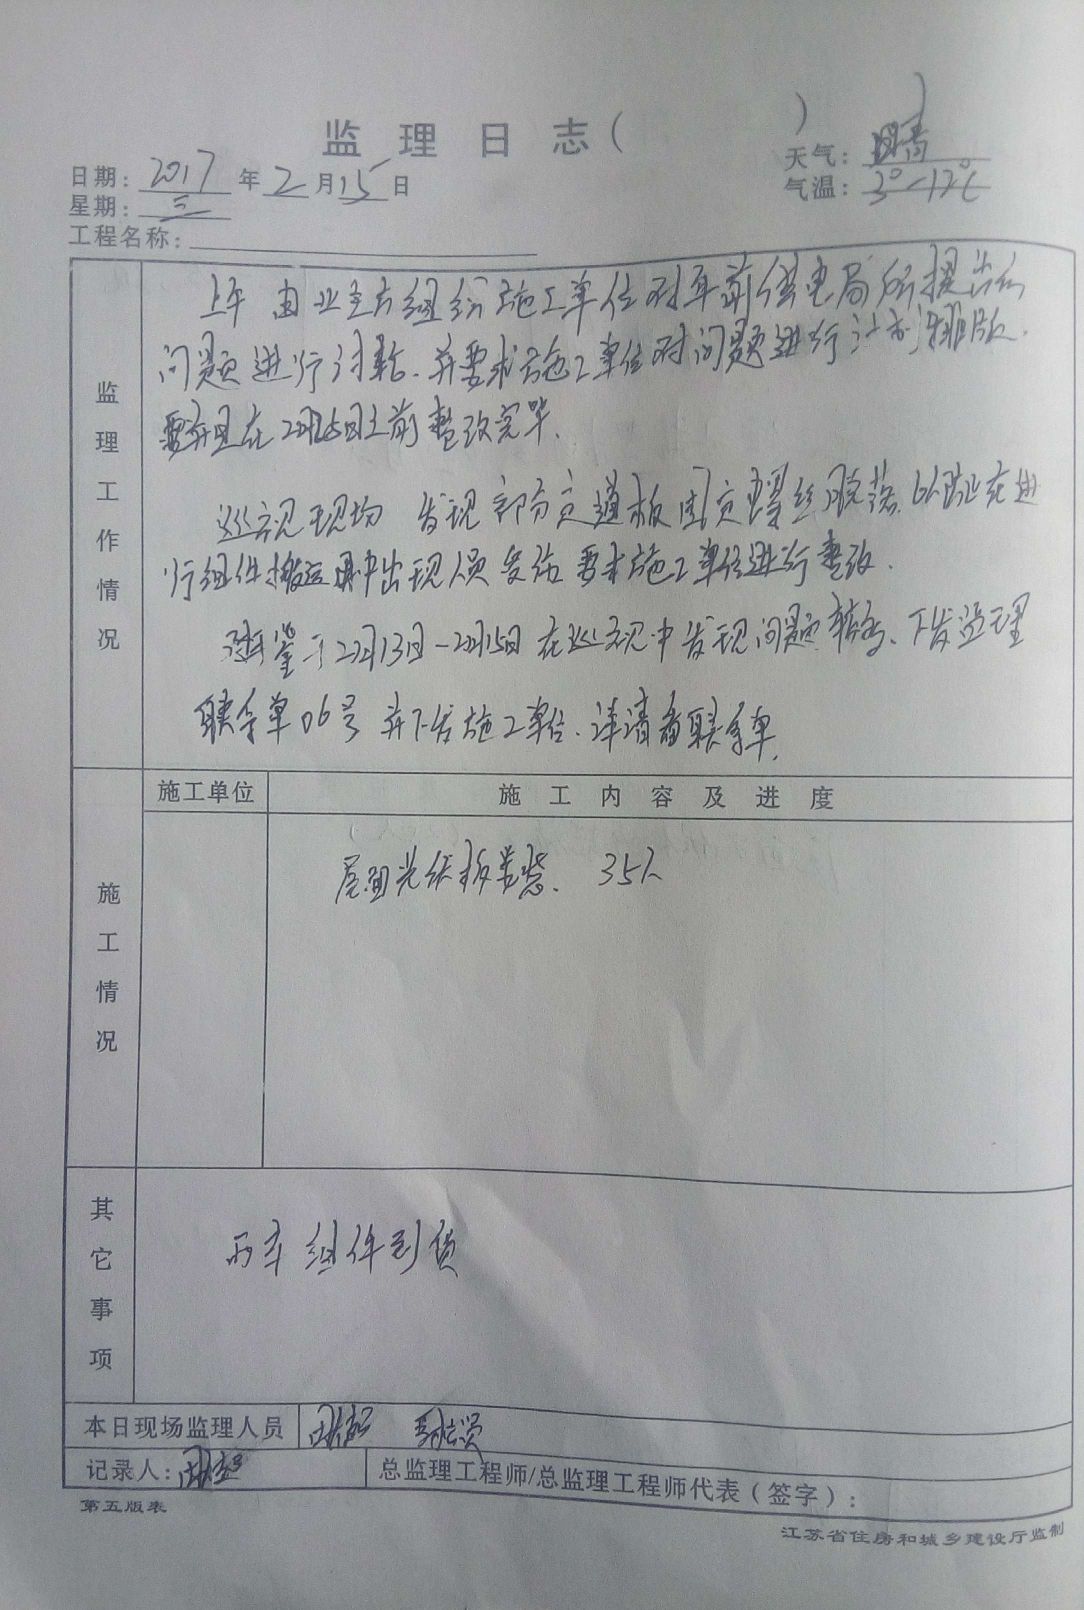 监理日志（ ）
日期：2017年2月15日
天气：晴
星期：三
气温：3°~12℃
工程名称：
监理工作情况
上午 由业主方组织施工单位对年前供电局所提出的
问题进行讨论.并要求施工单位对问题进行计划排版.
要并且在2月25日之前整改完毕.
巡视现场 发现部分走道板固定螺丝脱落.以防止在进
行组件搬运中出现人员受伤 要求施工单位进行整改.
鉴于2月13日-2月15日在巡视中发现问题较多、下发监理
联系单06号 并下发施工单位.详情看联系单.
施工单位
施工内容及进度
施工情况
屋面光伏板安装. 35人
其它事项
两车组件到货
本日现场监理人员
记录人：
总监理工程师/总监理工程师代表（签字）：
第五版表
江苏省住房和城乡建设厅监制